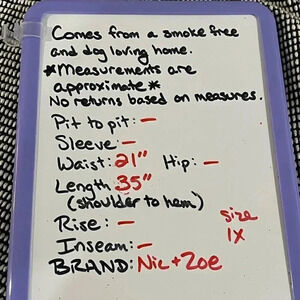 Comes from a smoke free
and dog loving home.
*Measurements are
approximate*
No returns based on measures.
Pit to pit: –
Sleeve: –
Waist: 21" Hip: –
Length 35"
(shoulder to hem)
Rise: –
Inseam: –
size
1X
BRAND: Nic + Zoe